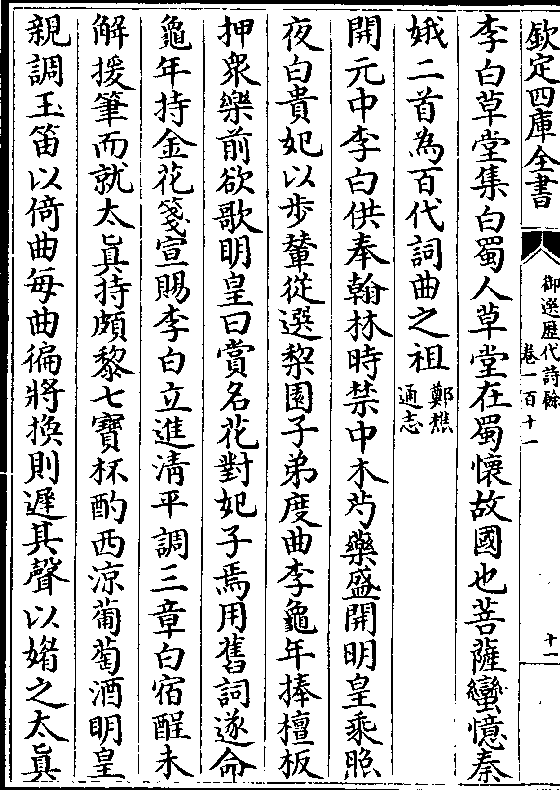 欽定四庫全書
御選歷代詩餘
卷一百十一
十一
李白草堂集白蜀人草堂在蜀懷故國也菩薩蠻憶秦
娥二首為百代詞曲之祖
鄭樵
通志
開元中李白供奉翰林時禁中木芍藥盛開明皇乘照
夜白貴妃以步輦從選棃園子弟度曲李龜年捧檀板
押衆樂前欲歌明皇曰賞名花對妃子焉用舊詞遂命
龜年持金花箋宣賜李白立進清平調三章白宿酲未
解援筆而就太眞持頗黎七寶杯酌西涼葡萄酒明皇
親調玉笛以倚曲每曲徧將換則遲其聲以媚之太眞